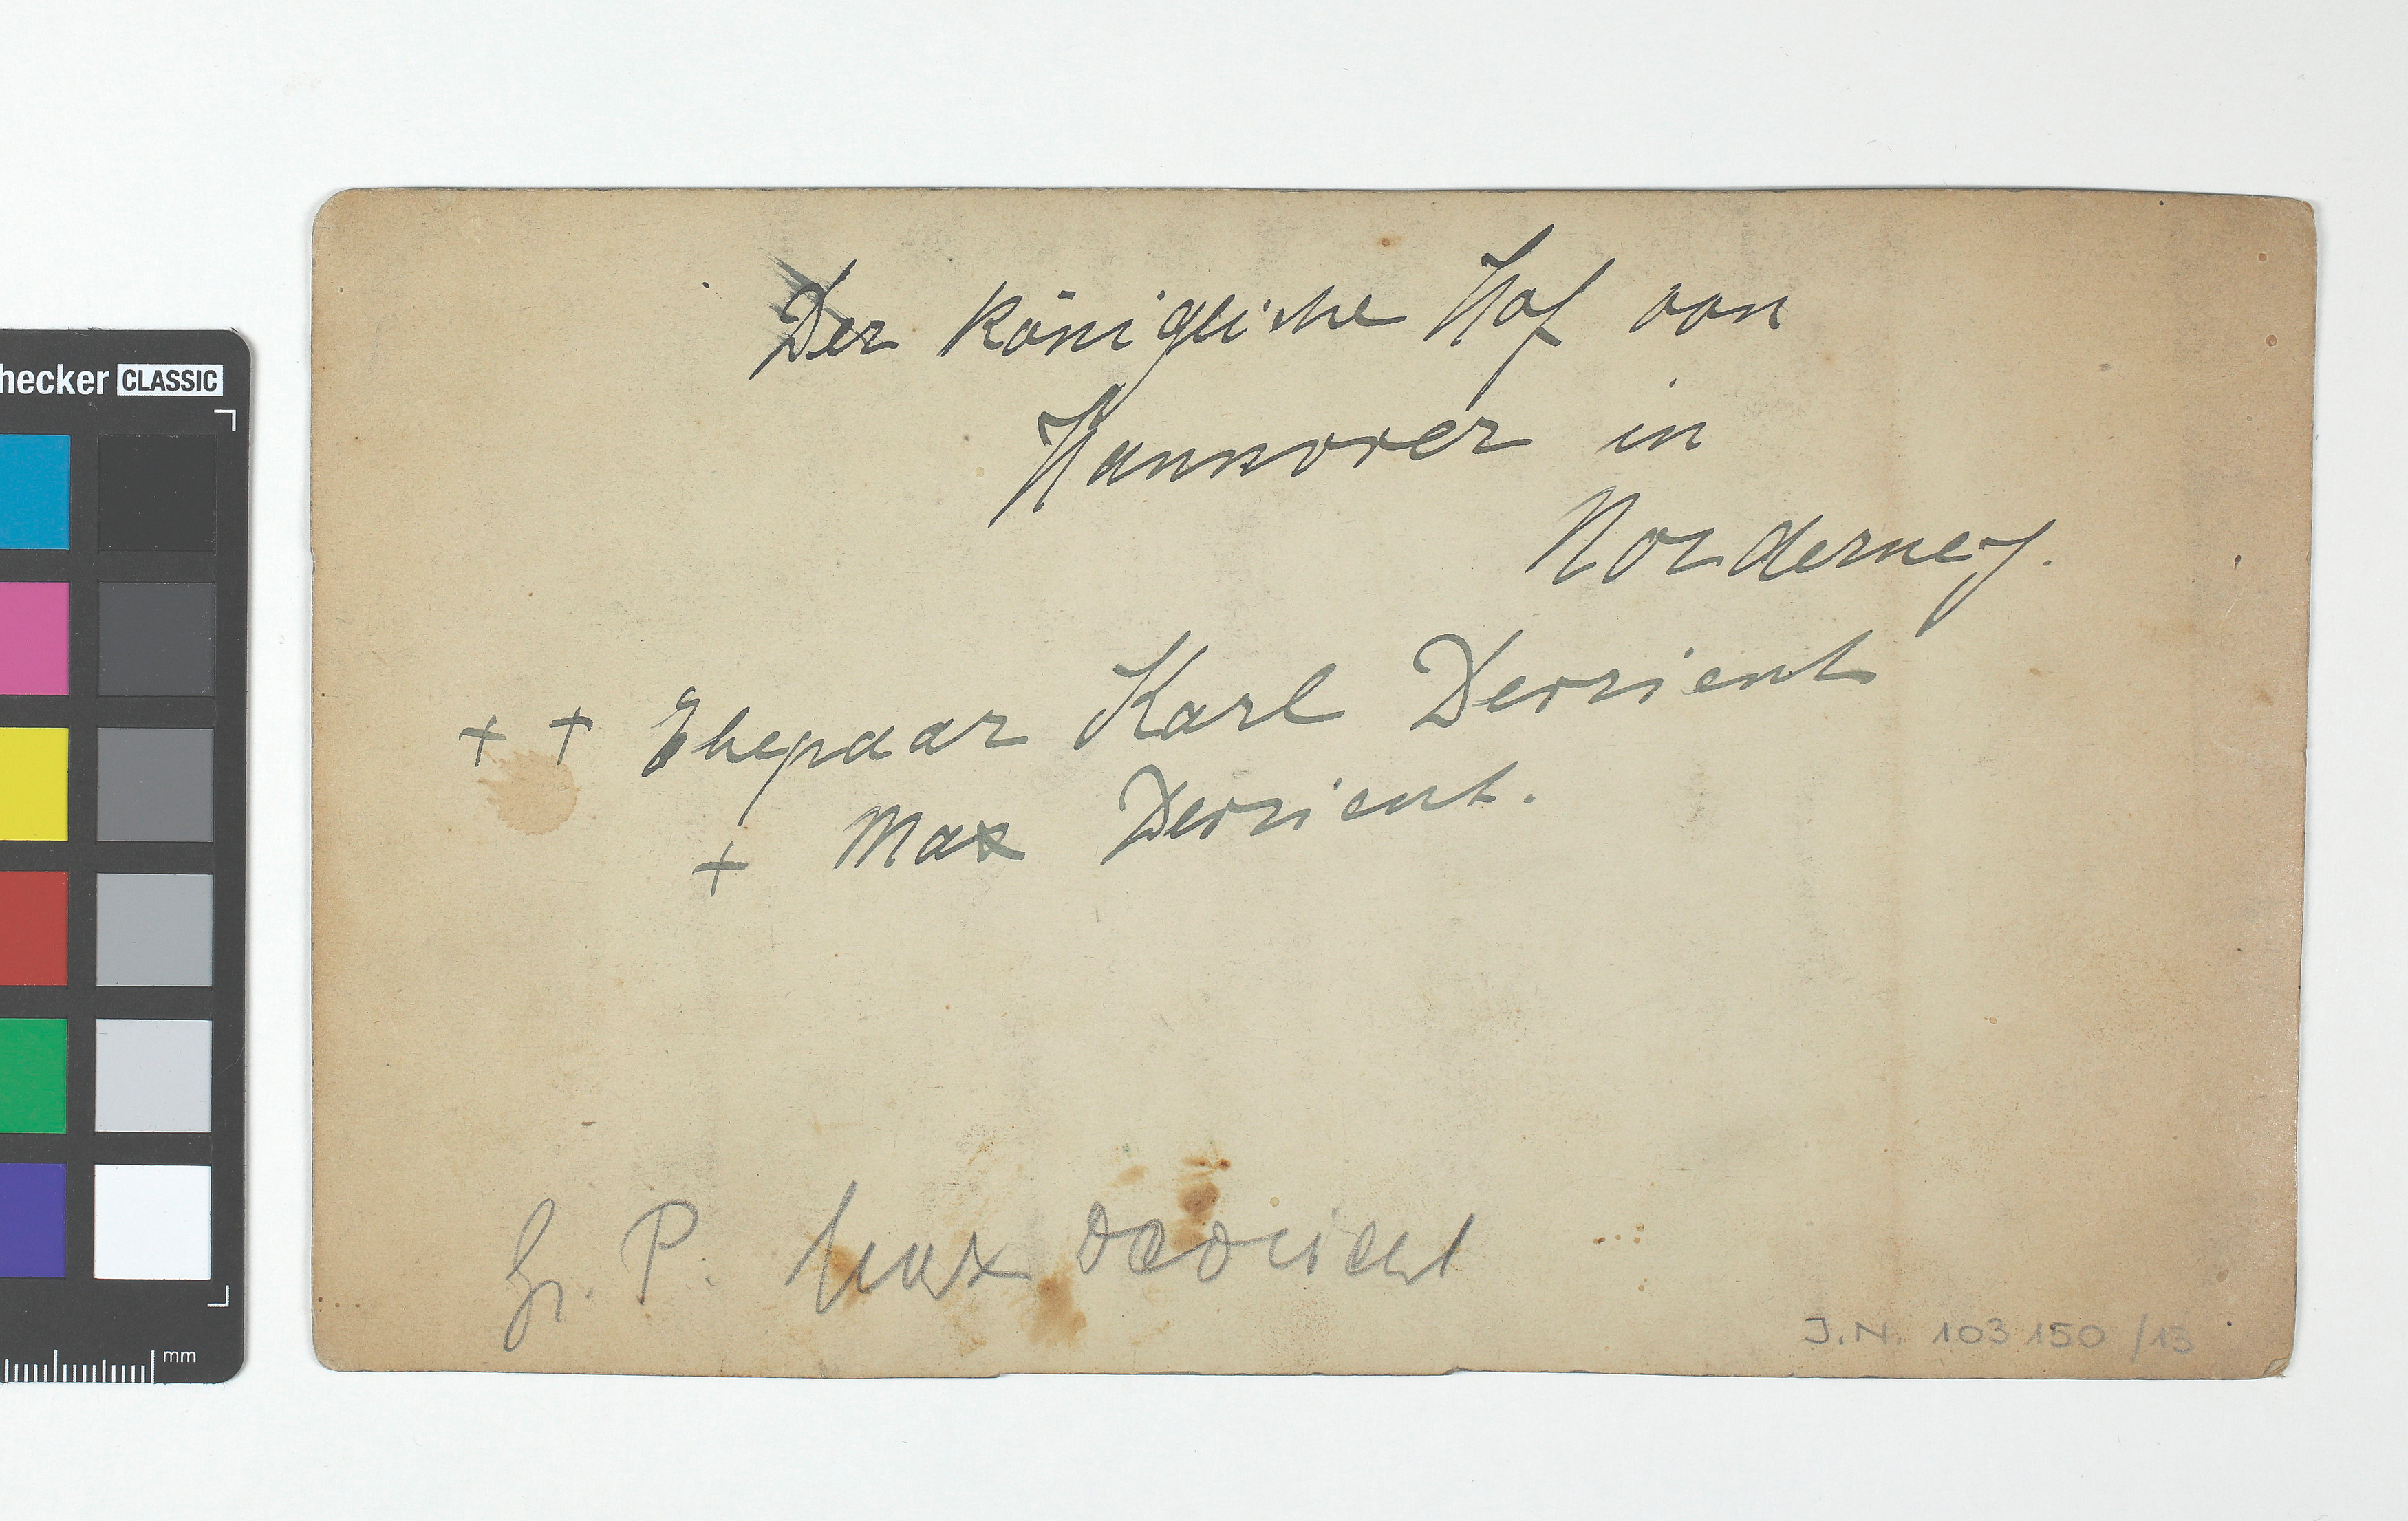 hecker CLASSIC
Der königliche Hof von
Hannover in
Norderney.
+ + Ehepaar Karl Devrient
+ Max Devrient.
Gr. P. Max Devrient
J.N. 103 150 /13
mm